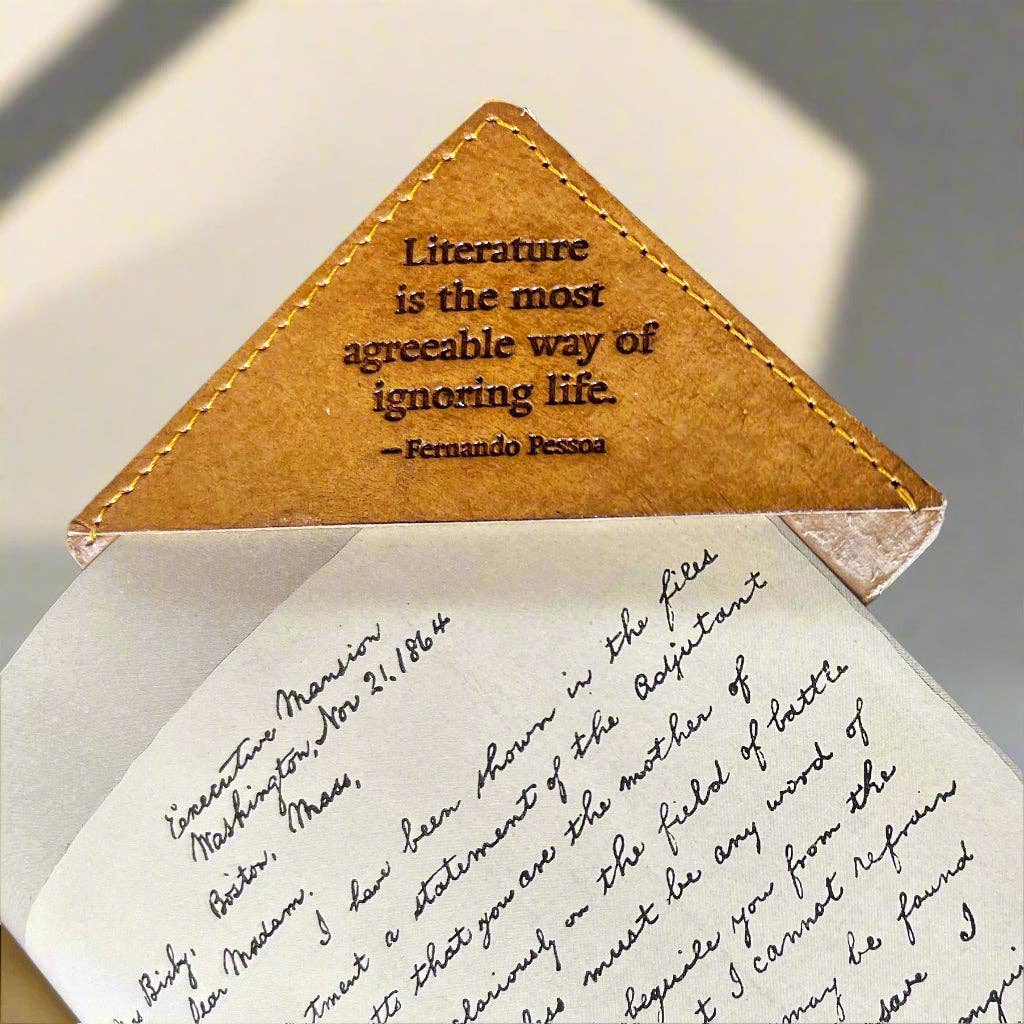 Literature
is the most
agreeable way of
ignoring life.
—Fernando Pessoa
Executive Mansion
Washington, Nov 21, 1864
Mass,
Boston,
Bixby,
Dear Madam.
I have been shown in the files
tment a statement of the Adjutant
that you are the mother of
loriously on the field of battle
must be any word of
beguile you from the
I cannot refrain
may be found
save I